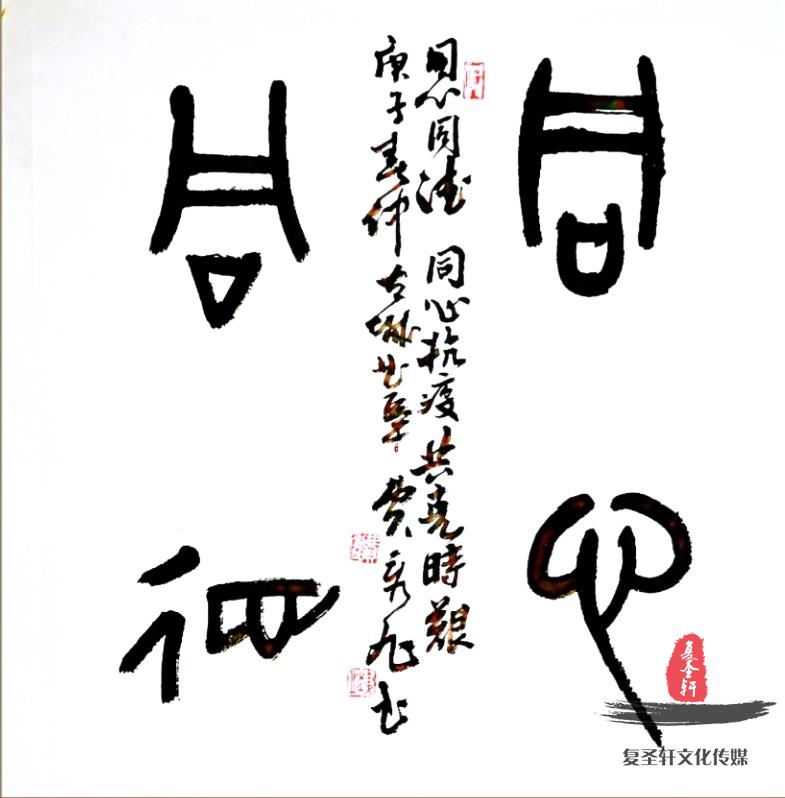 同心
同德
同心同德 同心抗疫 共克時艱
庚子春仲古城曲阜 費秀 书
复圣轩
复圣轩文化传媒